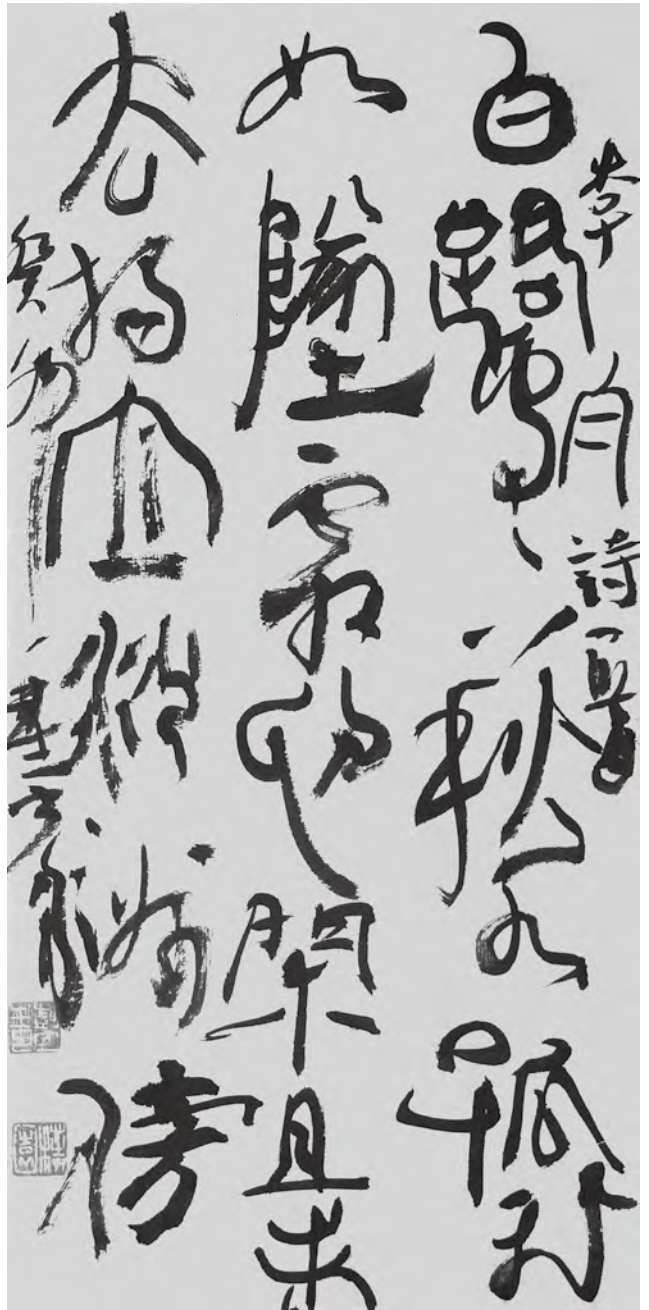 李白詩一首
白鷺下秋水孤飛
如墜霜心閒且未
去獨立洲傍
癸卯